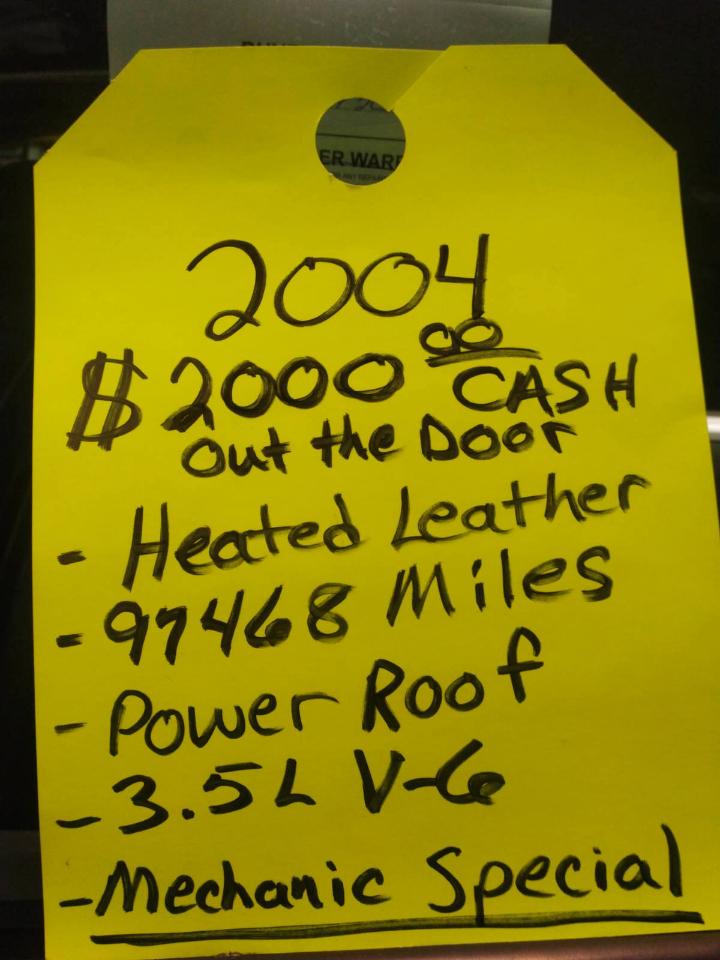 ER WARR
2004
$2000 00 CASH
Out the Door
- Heated Leather
- 97468 Miles
- Power Roof
- 3.5L V-6
- Mechanic Special